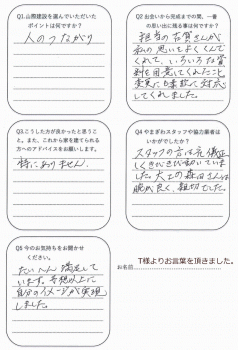 Q1.山際建設を選んでいただいた
ポイントは何ですか?
人のつながり
Q2 出会いから完成までの間、一番
の思い出に残る事は何ですか?
担当の古賀さんが
私の思いをよくくんで
くれて、いろいろな資
料を用意してくれたこと
変更にも柔軟に対応
してくれました。
Q3.こうした方が良かったと思うこ
と。また、これから家を建てられる
方へのアドバイスをお願いします。
特にありません。
Q4 やまぎわスタッフや協力業者は
いかがでしたか?
スタッフの方は礼儀正
しくきびきび動いていま
した。大工の森田さんは
腕が良く、親切でした。
Q5 今のお気持ちをお聞かせ
ください。
たいへん満足して
います。予想以上に
自分のイメージが実現
しました。
お名前
T様よりお言葉を頂きました。